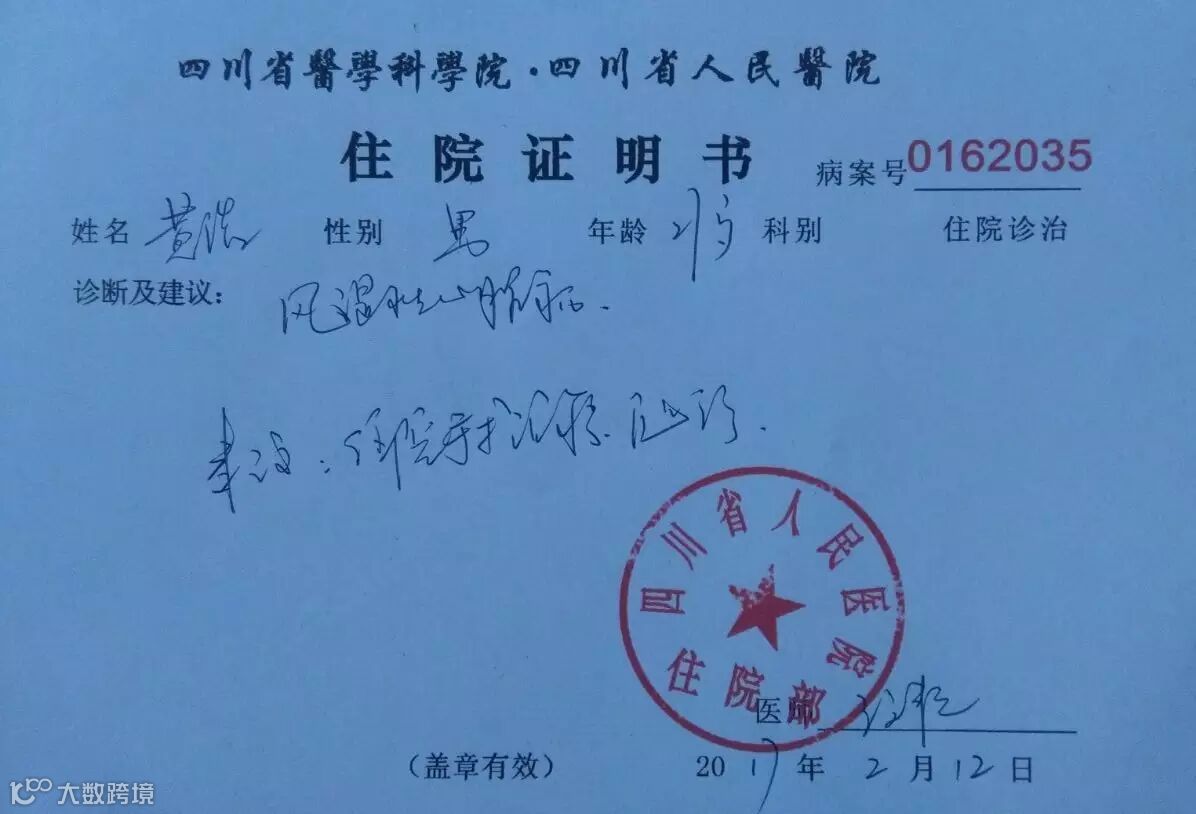 四川省醫學科學院·四川省人民醫院
住院证明书
病案号0162035
姓名 黄浩 性别 男 年龄 21岁 科别 住院诊治
诊断及建议: 风湿性心脏病.
建议: 住院手术治疗.
四川省人民医院
住院部
医师
(盖章有效) 2017年2月12日
大数跨境